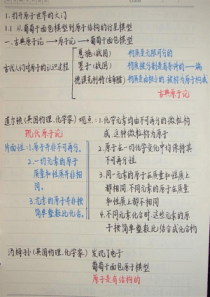 1. 打开原子世界的大门
1.1 从葡萄面包模型到原子结构的行星模型
一. 古典原子论 → 原子论 → 葡萄面包模型
惠施(战国) 物质是无限可分的
古代人们对原子的认识过程 墨子(战国) 物质被分割是有条件的
德谟克利特(古希腊) 物质是由极小的
古典原子论
道尔顿(英国物理、化学家) 观点: 1. 化学元素由不可再分的微粒构成 这种微粒称为原子
现代原子论
2. 原子在一切化学变化中保持其不可再分性
局限性: 1. 原子并非不可再分。
2. 一切元素的原子质量和性质并非相同。
3. 同一元素的原子在质量和性质上都相同. 不同元素的原子在质量和性质上都不相同
3. 元素的原子并非按简单整数比化合。
4. 不同元素化合时,这些元素的原子按简单整数比结合成化合物
汤姆孙(英国物理、化学家) 发现了电子
葡萄面包原子模型
原子是有结构的